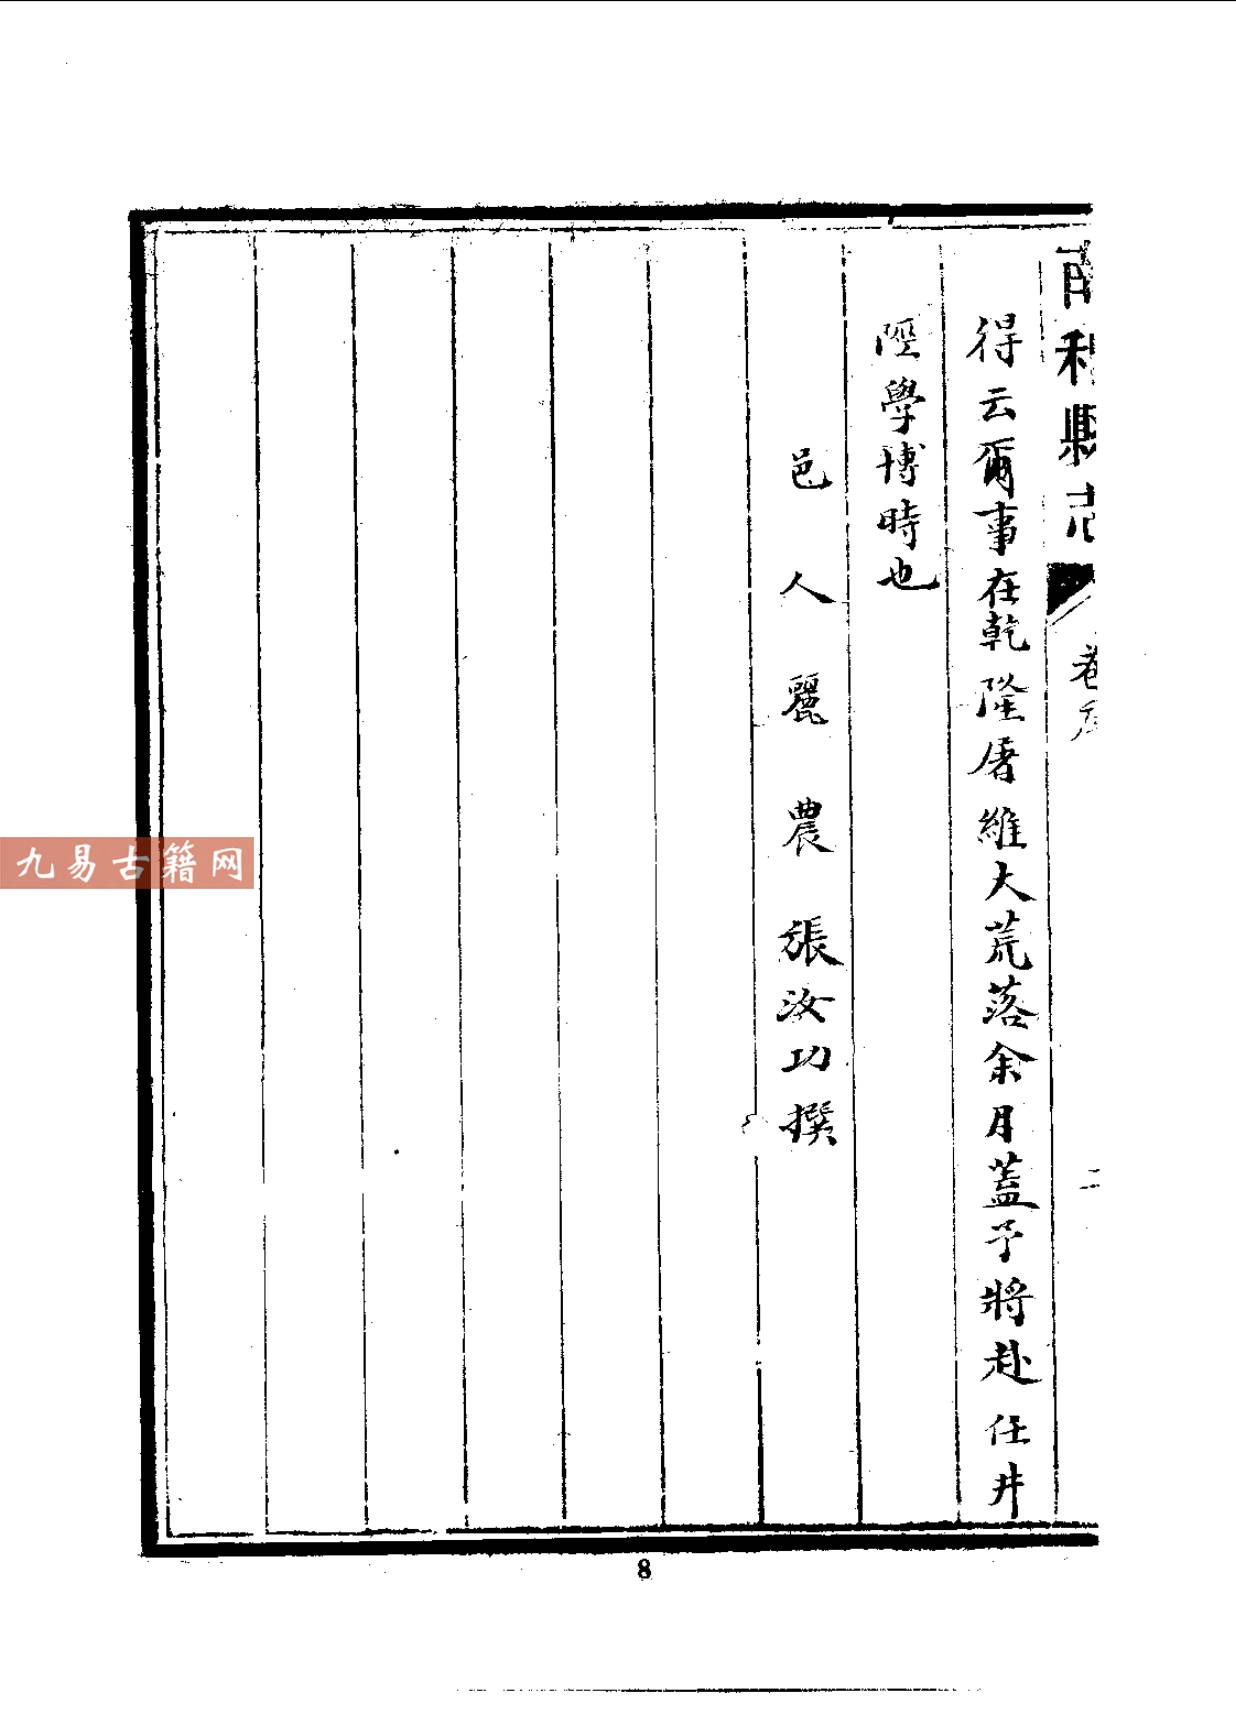 南和縣志
卷序
二
得云爾事在乾隆屠維大荒落余月蓋予將赴任井
陘學博時也
邑人麗農張汝功撰
九易古籍网
8